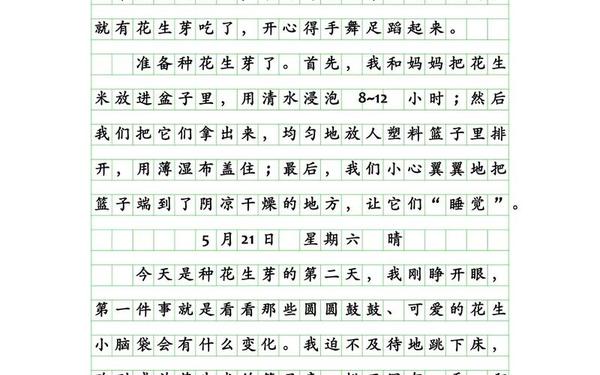 就有花生芽吃了，开心得手舞足蹈起来。
准备种花生芽了。首先，我和妈妈把花生
米放进盆子里，用清水浸泡 8~12 小时；然后
我们把它们拿出来，均匀地放人塑料篮子里排
开，用薄湿布盖住；最后，我们小心翼翼地把
篮子端到了阴凉干燥的地方，让它们“睡觉”。
5月21日 星期六 晴
今天是种花生芽的第二天，我刚睁开眼，
第一件事就是看看那些圆圆鼓鼓、可爱的花生
小脑袋会有什么变化。我迫不及待地跳下床，